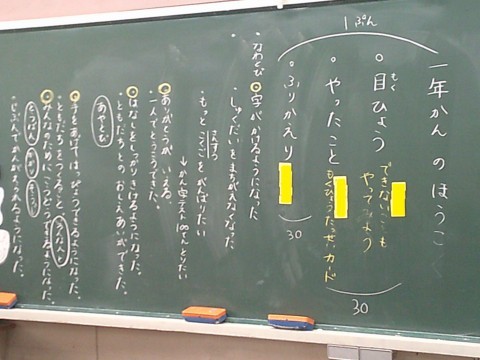 1ぷん
一年かんのほうこく
目ひょう
もく
できないことも
やってみよう
やったこと
もくひょうたっせいカード
30
ふりかえり
30
なわとび
字がかけるようになった
しゅくだいをまちがえなくなった。
もっとこくごをがんばりたい
さんすう
かん字テスト100てんとりたい
ありがとうがいえる。
一人でとうこうできた。
はなしをしっかりきけるようになった。
ともだちとのおしえあいができた。
あやとび
手をあげてはっぴょうできるようになった。
ともだちをつくること
みんなのためにこうどうできるようになった。
じぶんでかんがえつくれるようになった。